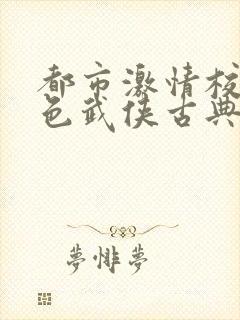 都市激情校
色武侠古典
夢悱夢